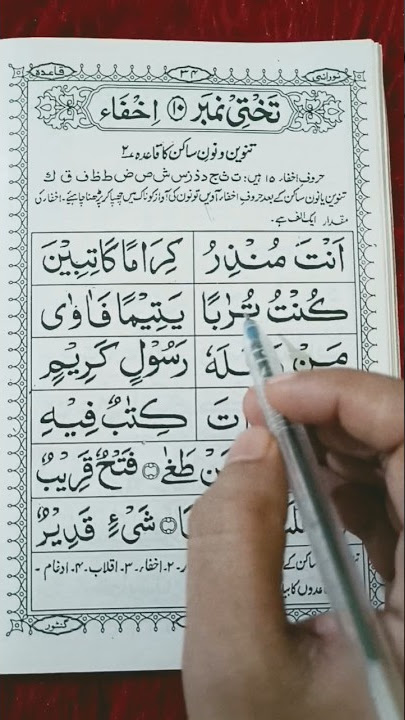 نورانی ۳۴ قاعدہ
تختی نمبر ۱۰ اِخْفَاء
تنوین و نون ساکن کا قاعدہ ۲
حروفِ اخفاء ۱۵ ہیں: ت ث ج د ذ ز س ش ص ض ط ظ ف ق ك
تنوین یا نون ساکن کے بعد حروفِ اخفاء آویں تو نون کی آواز کو ناک میں چھپا کر پڑھنا چاہیئے۔ اخفاء کی
مقدار ایک الف ہے۔
اَنْتَ مُنْذِرُ كِرَامًا كَاتِبِيْنَ
كُنْتُ تُرٰبًا يَتِيْمًا فَاٰوٰى
مَنْ رَسُوْلٍ كَرِيْمٍ
كِتٰبٌ فِيْهِ
طَغٰى فَتْحٌ قَرِيْبٌ
شَىْءٍ قَدِيْرٌ
ساکن کے ۲۔ اخفاء ۳۔ اقلاب ۴۔ ادغام
گنٹور